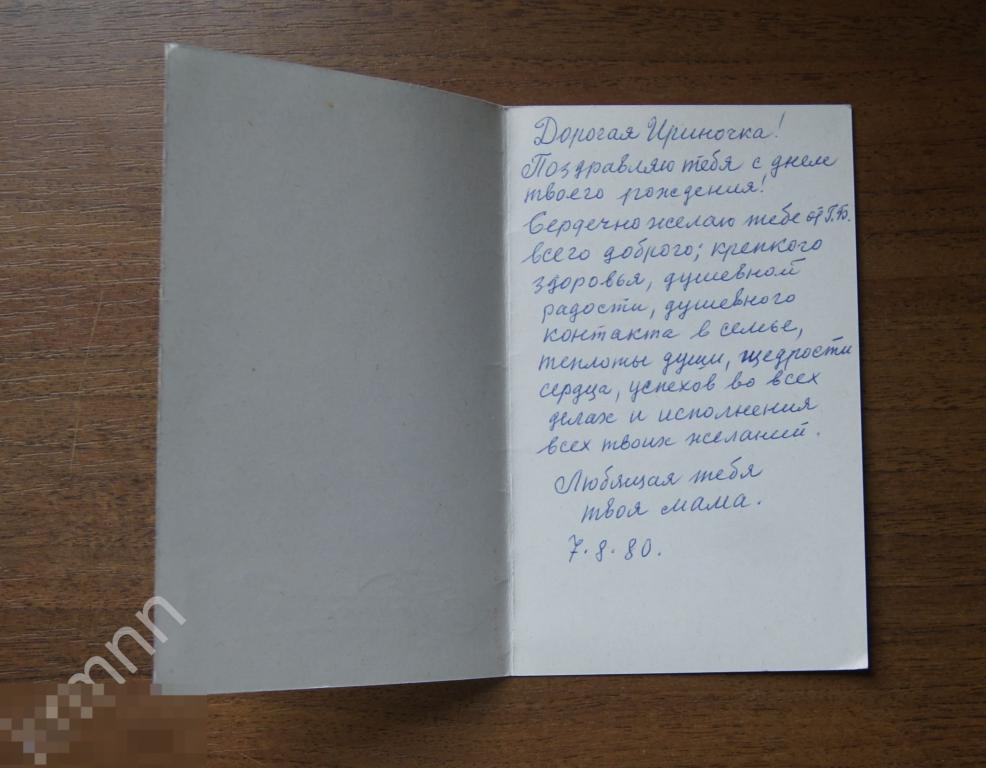 Дорогая Ириночка!
Поздравляю тебя с днем
твоего рождения!
Сердечно желаю тебе от Г.Б.
всего доброго; крепкого
здоровья, душевной
радости, душевного
контакта в семье,
теплоты души, щедрости
сердца, успехов во всех
делах и исполнения
всех твоих желаний.
Любящая тебя
твоя мама.
7.8.80.